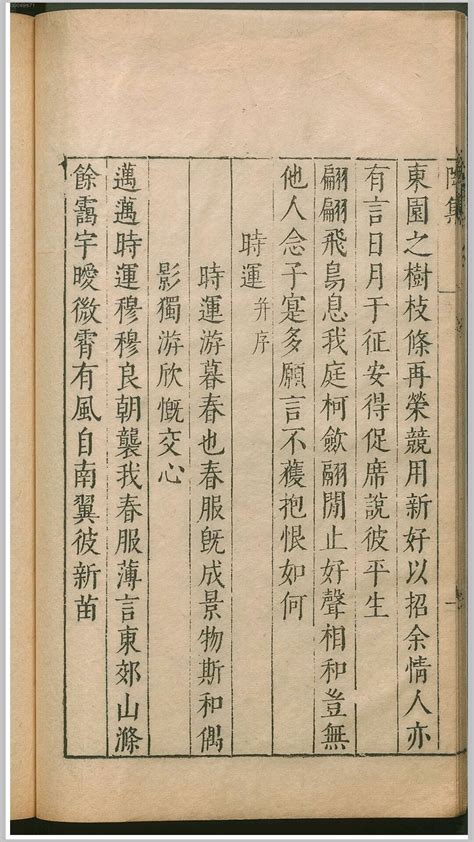 東園之樹枝條再榮競用新好以招余情人亦
有言日月于征安得促席說彼平生
翩翩飛鳥息我庭柯斂翮閒止好聲相和豈無
他人念子寔多願言不獲抱恨如何
時運 并序
時運游暮春也春服旣成景物斯和偶
影獨游欣慨交心
邁邁時運穆穆良朝襲我春服薄言東郊山滌
餘靄宇曖微霄有風自南翼彼新苗